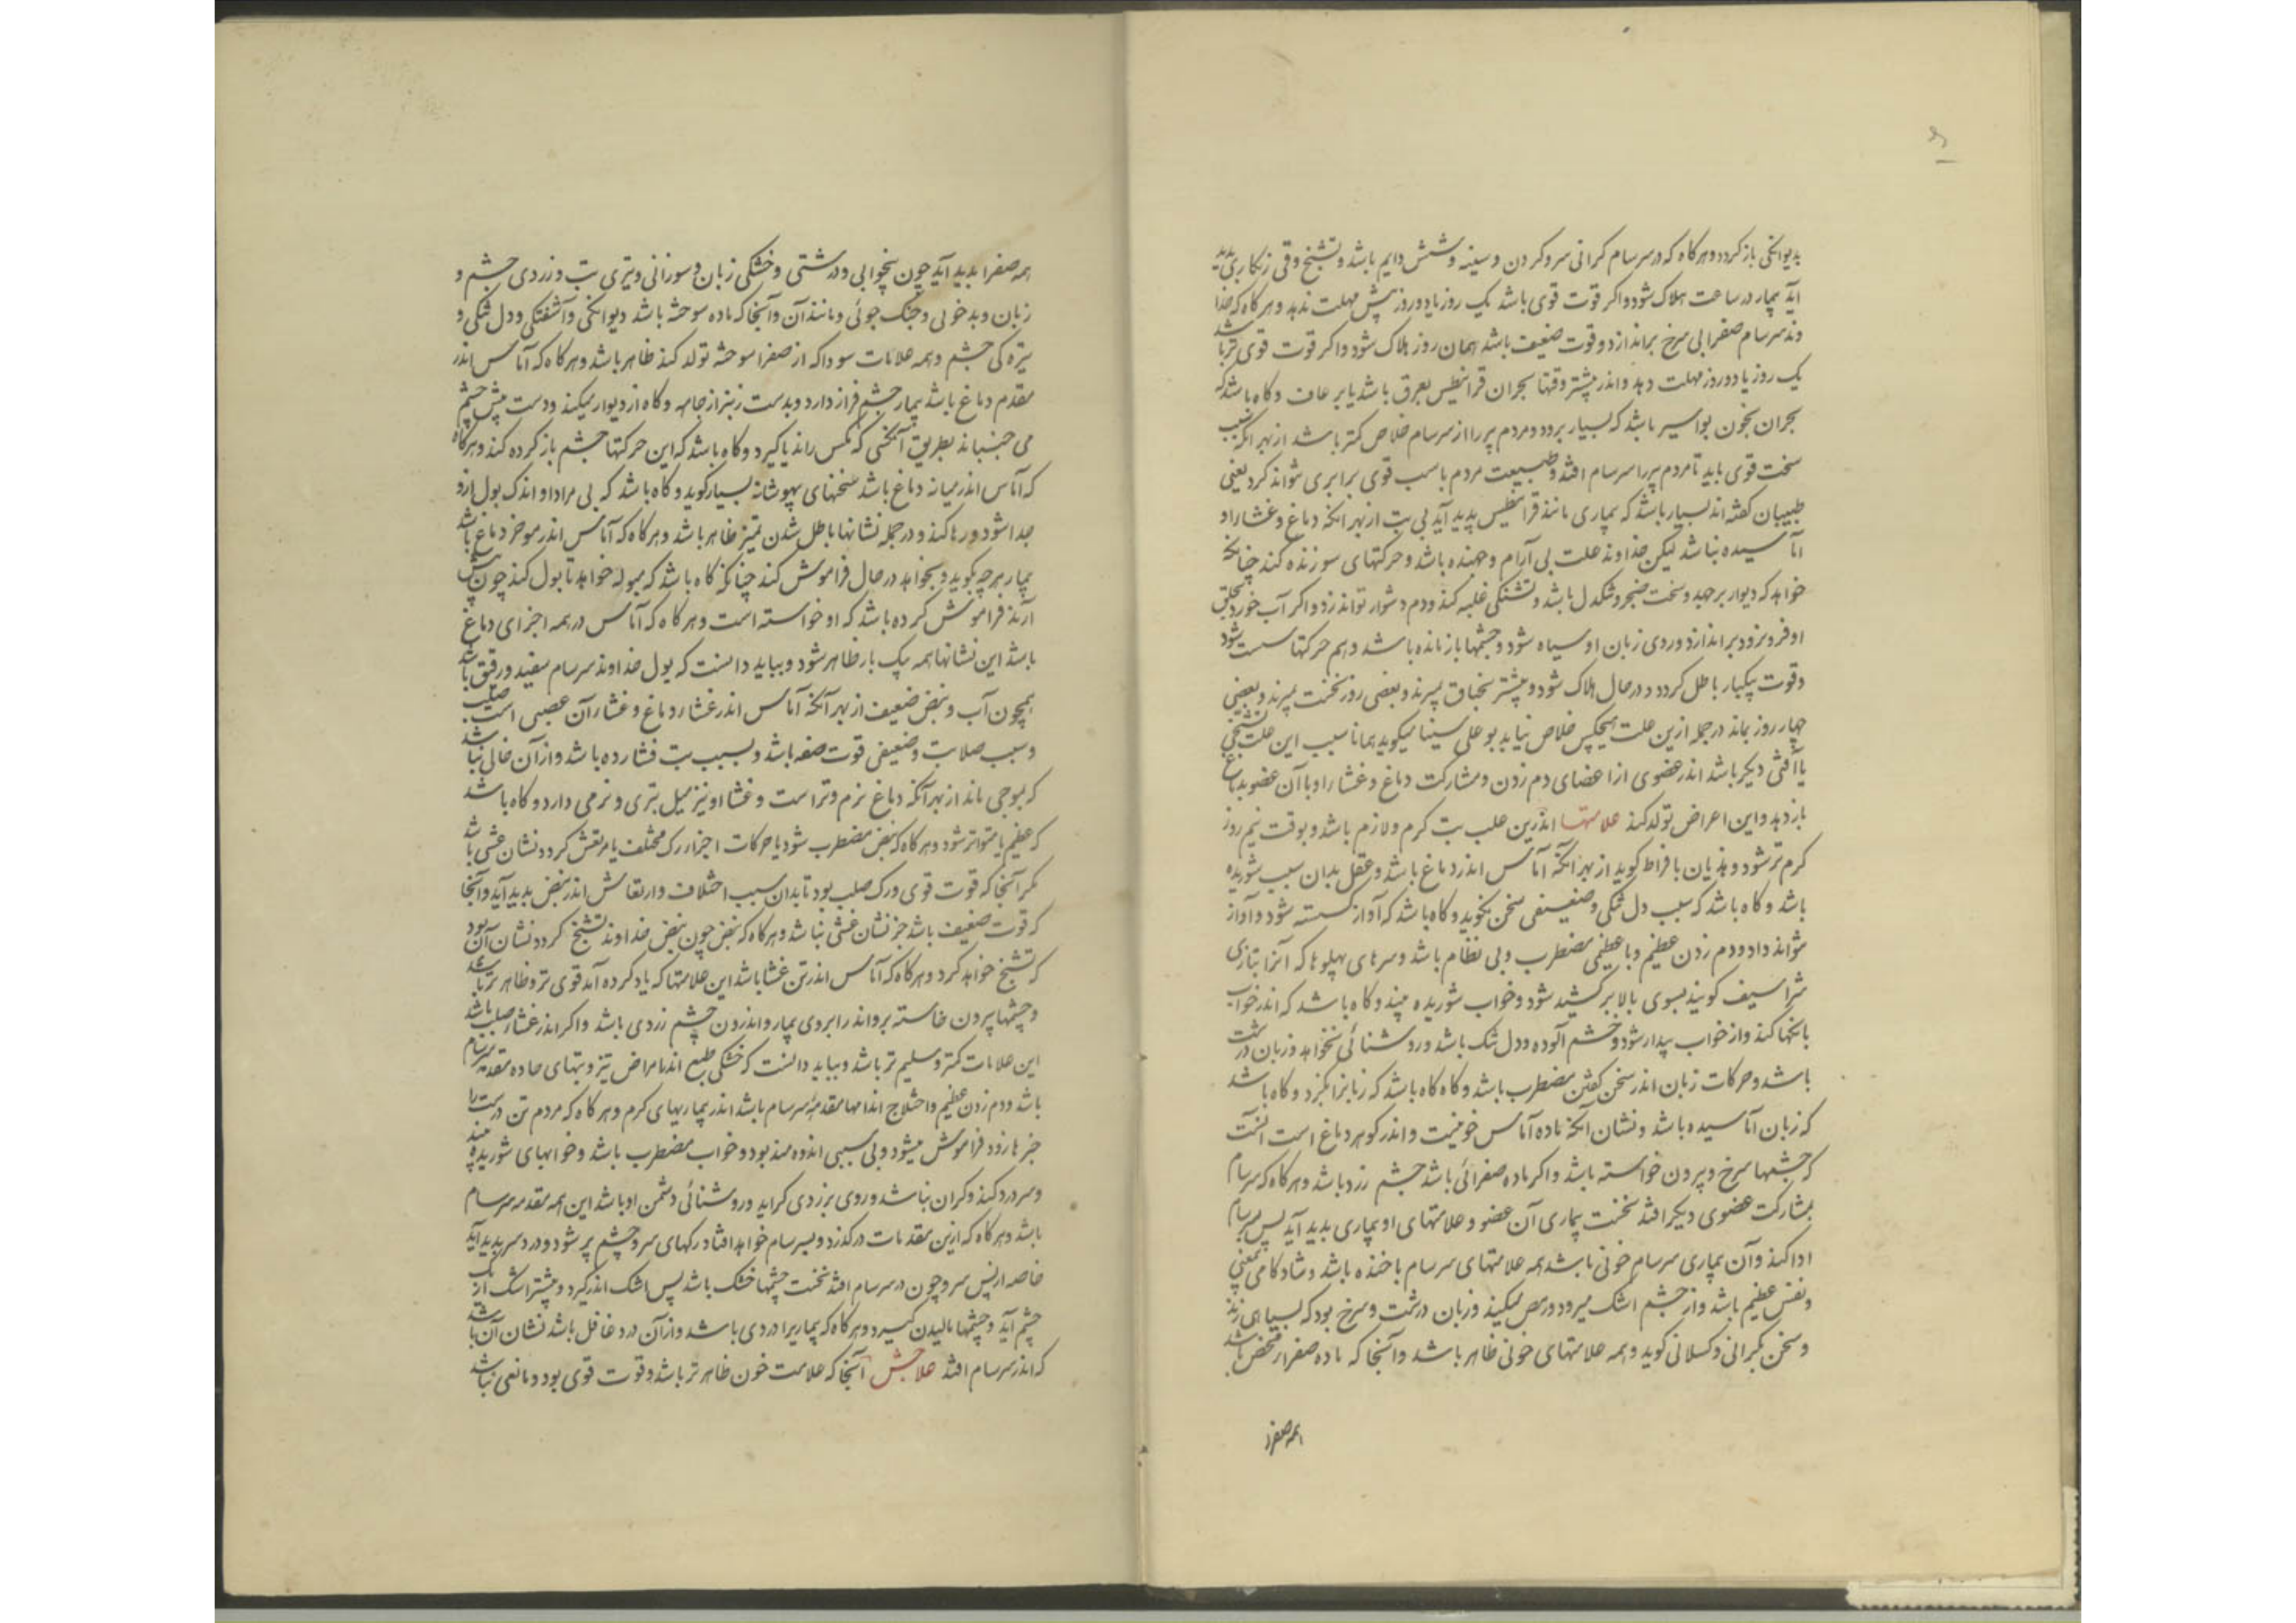 بدیوانکی باز کردد و هرکاه که در سرسام کرانی سر و کردن و سینه و شش دایم باشد و تشنج و قی زنکاری پدید
آید بیمار در ساعت هلاک شود و اکر قوت قوی باشد یک روز یا دو روز بیش مهلت ندهد و هرکاه که خدا
وند سرسام صفرایی سرخ براندازد و قوت ضعیف باشد همان روز هلاک شود و اکر قوت قوی تر باشد
یک روز یا دو روز مهلت دهد و اندر بیشتر وقتها بحران قرانیطس بعرق باشد یا برعاف و کاه باشد که
بحران بخون بواسیر باشد که بسیار برود و مردم پیر را از سرسام خلاص کمتر باشد از بهر انکه سبب
سخت قوی باید تا مردم پیر را سرسام افتد و طبیعت مردم با سبب قوی برابری نتواند کرد یعنی
طبیبان کفته اند بسیار باشد که بیماری مانند قرانیطس پدید آید بی تب از بهر انکه دماغ و غشا را و
آماسیده نباشد لیکن خداوند علت بی آرام و جهنده باشد و حرکتهای سوزنده کند چنانکه
خواهد که دیوار برجهد و سخت ضجر و تنکدل باشد و تشنکی غلبه کند و دم دشوار تواند زد و اکر آب خورد بحلق
او فرو نرود براندازد و روی زبان او سیاه شود و چشمها باز مانده باشد و هم حرکتها سست شود
و قوت بیکبار باطل کردد و در حال هلاک شود و بیشتر بخناق بمیرند و بعضی روز نخست بمیرند و بعضی
چهار روز بماند در جمله ازین علت هیچکس خلاص نیابد بوعلی سینا میکوید همانا سبب این علت تشنجی
یا آفتی دیکر باشد اندر عضوی از اعضای دم زدن و مشارکت دماغ و غشا را و با آن عضو بدماغ
باز دهد و این اعراض تولد کند علامتها اندرین علت تب کرم و لازم باشد و بوقت نیم روز
کرم تر شود و هذیان بافراط کوید از بهر انکه آماس اندر دماغ باشد و عقل بدان سبب شوریده
باشد و کاه باشد که سبب دل تنکی و ضعیفی سخن نکوید و کاه باشد که آواز کسسته شود و آواز
نتواند داد و دم زدن عظیم و با عظیمی مضطرب و بی نظام باشد و سرهای پهلوها که آنرا بتازی
شراسیف کویند بسوی بالا برکشیده شود و خواب شوریده بیند و کاه باشد که اندر خواب
بانکها کند و از خواب بیدار شود و خشم آلوده و دل تنک باشد و روشنائی نخواهد و زبان درشت
باشد و حرکات زبان اندر سخن کفتن مضطرب باشد و کاه کاه باشد که زبانرا بکزد و کاه باشد
که زبان آماسیده باشد و نشان آنکه ماده آماس خونیست و اندر کوهر دماغ است آنست
که چشمها سرخ و بیرون خواسته باشد و اکر ماده صفرائی باشد چشم زرد باشد و هرکاه که سرسام
بمشارکت عضوی دیکر افتد نخست بیماری آن عضو و علامتهای او پدید آید پس بسرسام
ادا کند و آن بیماری سرسام خونی باشد همه علامتهای سرسام با خنده باشد و شادکامی
و نفس عظیم باشد و از چشم اشک میرود و رمص میکند و زبان درشت و سرخ بود که بسیاهی زند
و سخن بکرانی و کسلانی کوید و همه علامتهای خونی ظاهر باشد و آنجا که ماده صفرا محض باشد
همه صفرا
همه صفرا بدید آید چون بیخوابی و درشتی و خشکی زبان و سوزانی و تیزی تب و زردی چشم و
زبان و بدخویی و جنک جوئی و مانند آن و آنجا که ماده سوخته باشد دیوانکی و آشفتکی و دل تنکی و
تیره کی چشم و همه علامات سودا که از صفرا سوخته تولد کند ظاهر باشد و هرکاه که آماس اندر
مقدم دماغ باشد بیمار چشم فراز دارد و بدست زیبر از جامه و کاه از دیوار میکند و دست پیش چشم
می جنباند بطریق آنکسی که مکس راند یا کیرد و کاه باشد که این حرکتها چشم باز کرده کند و هرکاه
که آماس اندر میانه دماغ باشد سخنهای بیهوشانه بسیار کوید و کاه باشد که بی مراد او اندک بول ازو
جدا شود و رها کند و در جمله نشانها باطل شدن تمیز ظاهر باشد و هرکاه که آماس اندر موخر دماغ باشد
بیمار هرچه بکوید و بخواهد در حال فراموش کند چنانکه کاه باشد که مبوله خواهد تا بول کند چون پیش
آرند فراموش کرده باشد که او خواسته است و هرکاه که آماس در همه اجزای دماغ
باشد این نشانها همه یک بار ظاهر شود و بباید دانست که بول خداوند سرسام سفید و رقیق باشد
همچون آب و نبض ضعیف از بهر آنکه آماس اندر غشاء دماغ و غشاء آن عصبی است صلب
و سبب صلابت و ضعیفی قوت صغیر باشد و بسبب تب فشارده باشد و از آن خالی نباشد
که بموجی ماند از بهر آنکه دماغ نرم و تر است و غشا او نیز میل بتری و نرمی دارد و کاه باشد
که عظیم یا متواتر شود و هرکاه که نبض مضطرب شود یا حرکات اجزاء رک مختلف یا مرتعش کردد نشان غشی باشد
مکر آنجا که قوت قوی و رک صلب بود تا بدان سبب اختلاف و ارتعاش اندر نبض بدید آید و آنجا
که قوت ضعیف باشد جز نشان غشی نباشد و هرکاه که نبض چون نبض خداوند تشنج کردد نشان آن بود
که تشنج خواهد کرد و هرکاه که آماس اندر تن غشا باشد این علامتها که یاد کرده آمد قوی تر و ظاهر تر باشد
و چشمها بیرون خاسته بر و اندر ابروی بیمار و اندرون چشم زردی باشد و اکر اندر غشاء صلب باشد
این علامات کمتر و سلیم تر باشد و بباید دانست که خشکی طبع اندر امراض تیز و تبهای حاده مقدمه سرسام
باشد و دم زدن عظیم و اختلاج اندامها مقدمه سرسام باشد اندر بیماریهای کرم و هرکاه که مردم تن درست را
خبرها زود فراموش میشود و بی سببی اندوه مند بود و خواب مضطرب باشد و خوابهای شوریده بیند
و سر درد کند و کران نباشد و روی بزردی کراید و روشنائی دشمن او باشد این همه مقدمه سرسام
باشد و هرکاه که ازین مقدمات درکذرد و بسرسام خواهد افتاد رکهای سر و چشم پر شود و درد سر بدید آید
خاصه از پس سر و چون در سرسام افتد نخست چشمها خشک باشد پس اشک اندر کیرد و بیشتر اشک از یک
چشم آید و چشمها مالیدن کیرد و هرکاه که بیماریرا دردی باشد و از آن درد غافل باشد نشان آن باشد
که اندر سرسام افتد علاجش آنجا که علامت خون ظاهر تر باشد و قوت قوی بود و مانعی نباشد